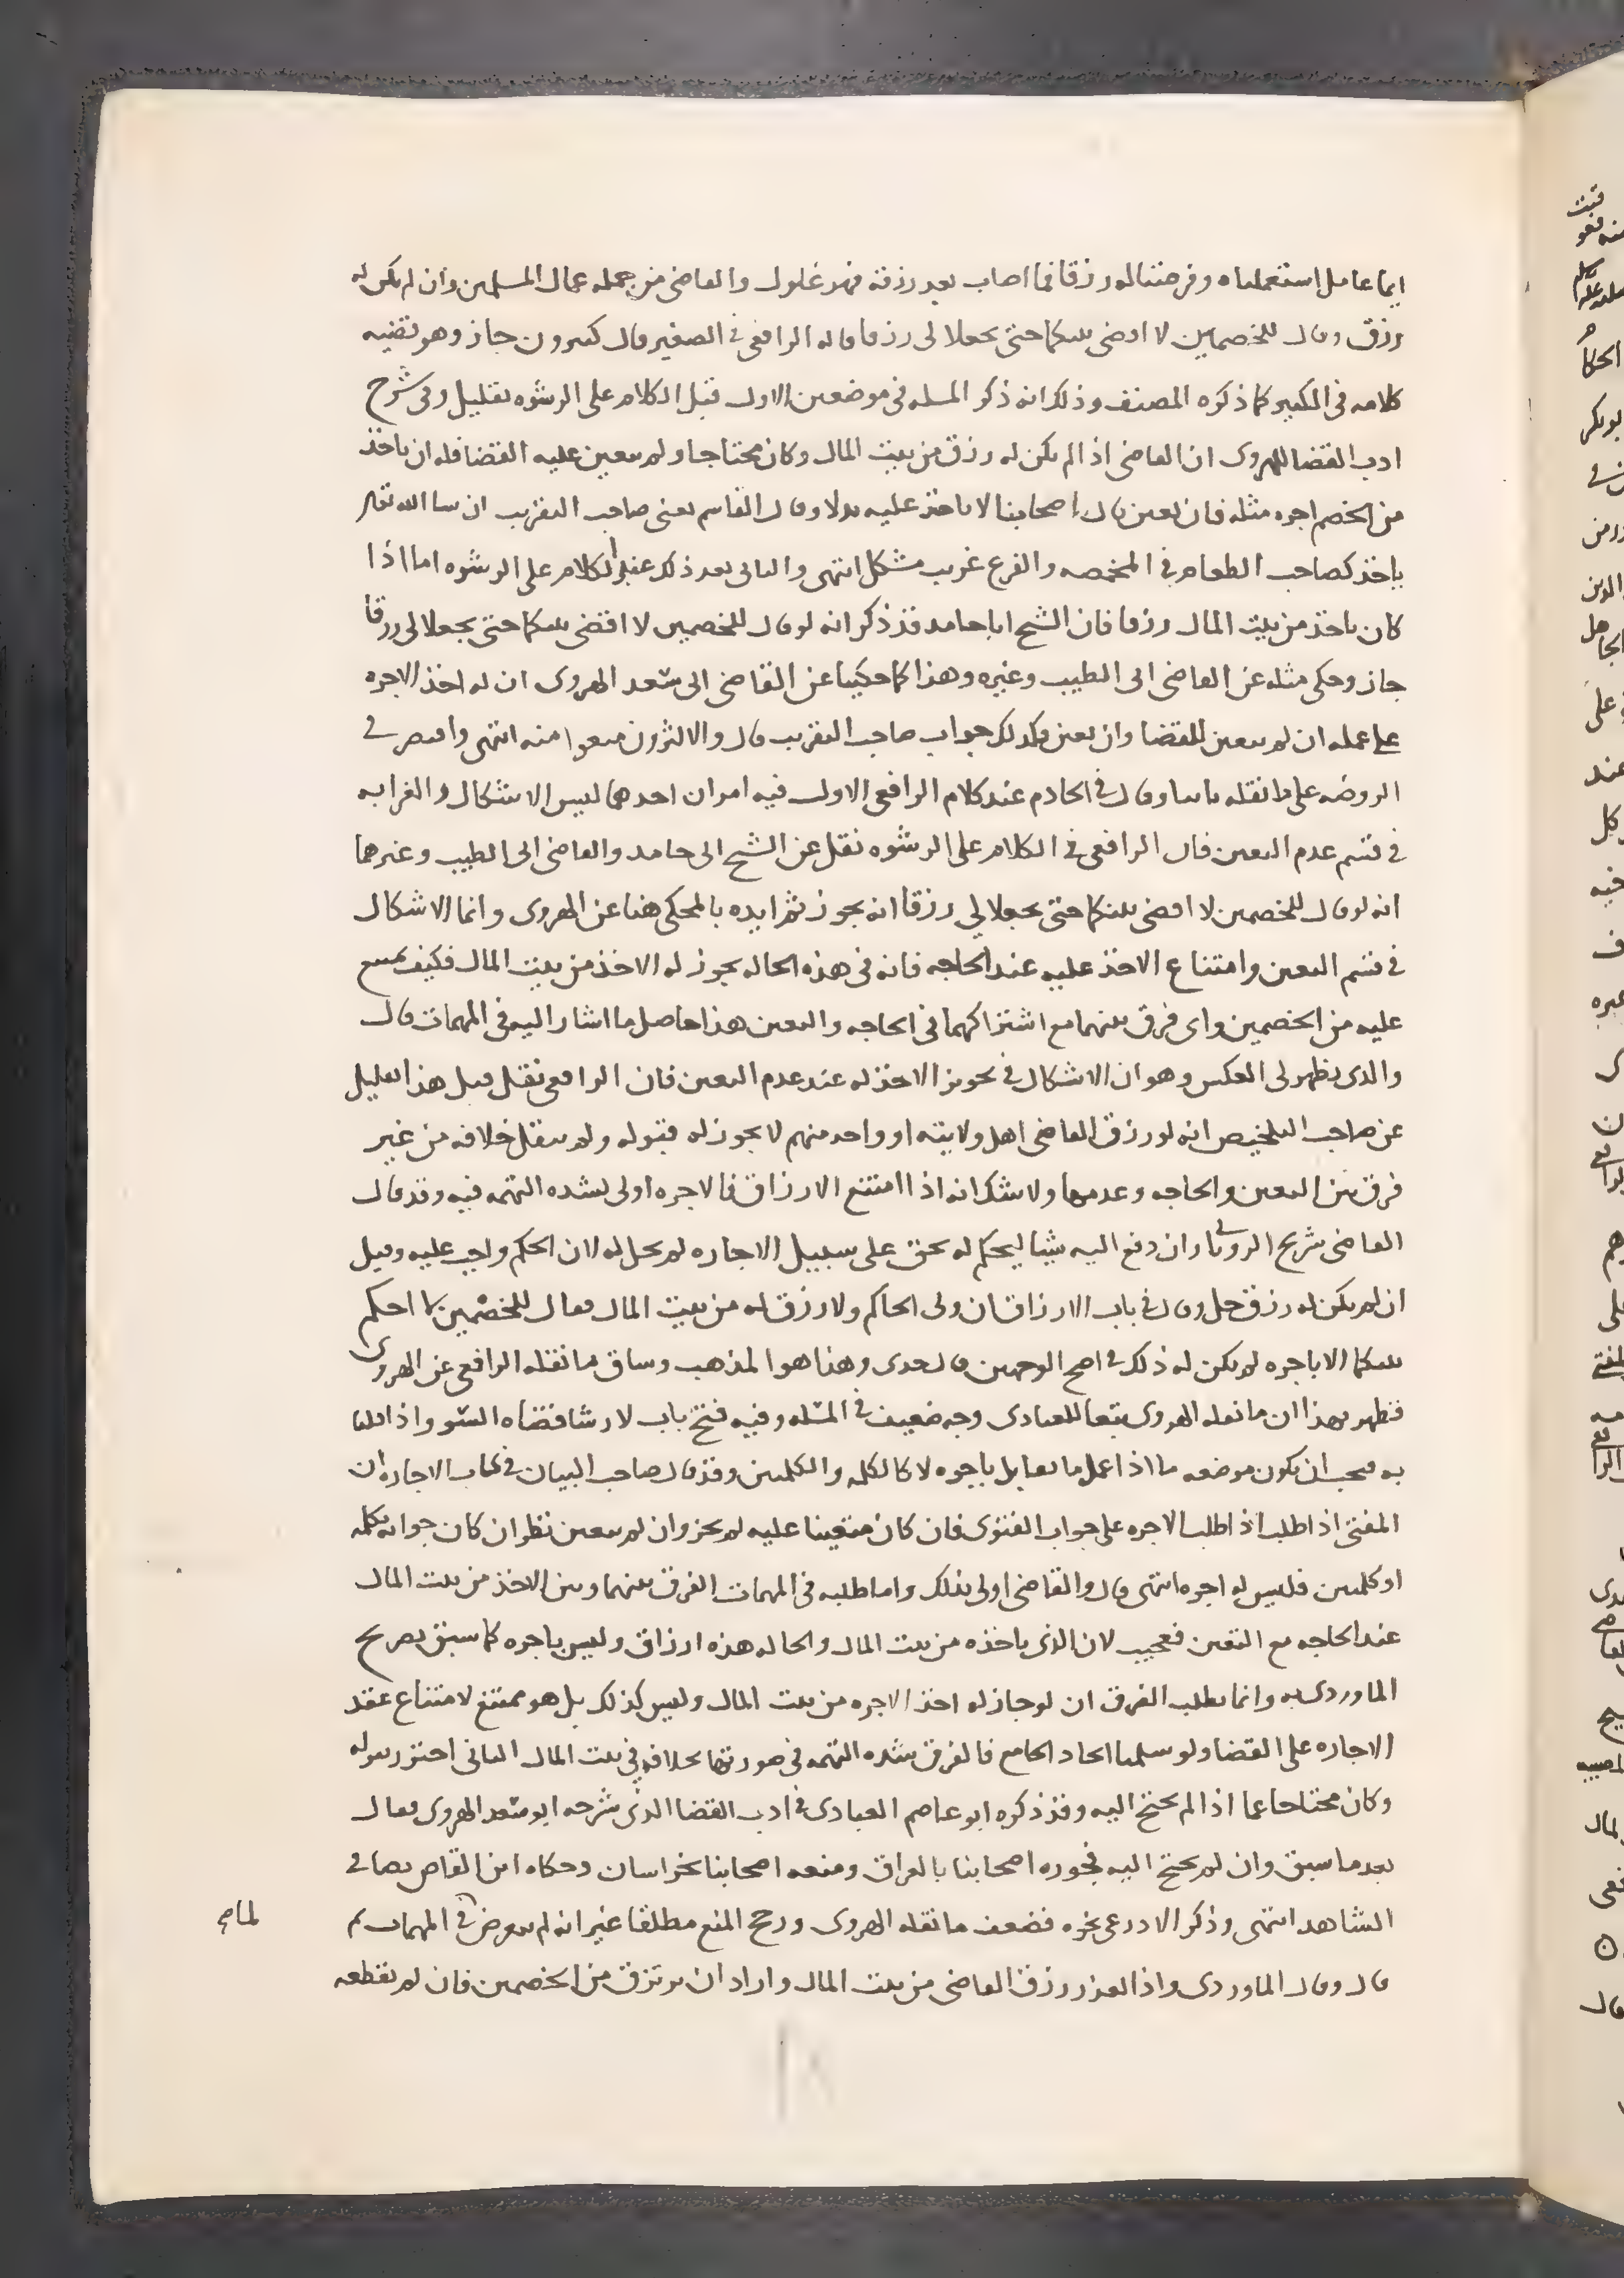 ايما عامل استعملناه وفرضنا له رزقا فما اصاب بعد رزقه فهو غلول والقاضي من جمله عمال المسلمين وان لم يكن له
رزق وقال للخصمين لا اقضي بينكما حتى تجعلا لي رزقا قال الرافعي في الصغير قال كثيرون جاز وهو قضيه
كلامه في الكبير كما ذكره المصنف وذلك انه ذكر المسله في موضعين الاول قبل الكلام على الرشوه بقليل وفي شرح
ادب القضا للهروي ان القاضي اذا لم يكن له رزق من بيت المال وكان محتاجا ولم يتعين عليه القضا فله ان ياخذ
من الخصم اجره مثله فان تعين قال اصحابنا لا ياخذ عليه بدلا وقال القاسم يعني صاحب التقريب ان سا الله تعالى
ياخذ كصاحب الطعام في المخمصه والفرع غريب مشكل انتهى والثاني بعد ذلك عند الكلام على الرشوه اما اذا
كان ياخذ من بيت المال رزقا فان الشيخ ابا حامد قد ذكر انه لو قال للخصمين لا اقضي بينكما حتى تجعلا لي رزقا
جاز وحكى مثله عن القاضي ابي الطيب وغيره وهذا كما حكينا عن القاضي ابي سعد الهروي ان له اخذ الاجره
على عمله ان لم يتعين للقضا وان تعين فكذلك جواب صاحب التقريب قال والاكثرون منعوا منه انتهى واقتصر في
الروضه على ما نقله ثانيا وقال في الخادم عند كلام الرافعي الاول فيه امران احدهما ليس الاشكال والغرابه
في قسم عدم التعين فان الرافعي في الكلام على الرشوه نقل عن الشيخ ابي حامد والقاضي ابي الطيب وغيرهما
انه لو قال للخصمين لا اقضي بينكما حتى تجعلا لي رزقا انه يجوز ثم ايده بالمحكي هنا عن الهروي وانما الاشكال
في قسم التعين وامتناع الاخذ عليه عند الحاجه فانه في هذه الحاله يجوز له الاخذ من بيت المال فكيف يمتنع
عليه من الخصمين واي فرق بينهما مع اشتراكهما في الحاجه والتعين هذا حاصل ما اشار اليه في المهمات قال
والذي يظهر لي العكس وهو ان الاشكال في تجويز الاخذ له عند عدم التعين فان الرافعي نقل قبل هذا بقليل
عن صاحب التلخيص انه لو رزق القاضي اهل ولايته او واحد منهم لا يجوز له قبوله ولم ينقل خلافه من غير
فرق بين التعين والحاجه وعدمها ولا شك انه اذا امتنع الارزاق فالاجره اولى لشده التهمه فيه وقد قال
القاضي شريح الروياني وان دفع اليه شيا ليحكم له بحق على سبيل الاجاره لم يحل له لان الحكم واجب عليه وقيل
ان لم يكن له رزق حل وقال في باب الارزاق ان ولي الحاكم ولا رزق له من بيت المال فقال للخصمين لا احكم
بينكما الا باجره لم يكن له ذلك في اصح الوجهين قال جدي وهذا هو المذهب وساق ما نقله الرافعي عن الهروي
فظهر بهذا ان ما نقله الهروي تبعا للعبادي وجه ضعيف في المسله وفيه فتح باب لارشا قضاه السو واذا قلنا
به فيجب ان يكون موضعه ما اذا عمل ما يقابل باجره لا كالكلمه والكلمتين وقد قال صاحب البيان في كتاب الاجاره ان
المفتي اذا طلب اذا طلب الاجره على جواب الفتوى فان كان متعينا عليه لم يجز وان لم يتعين نظر ان كان جوابه بكلمه
او كلمتين فليس له اجره انتهى قال والقاضي اولى بذلك واما طلبه في المهمات الفرق بينهما وبين الاخذ من بيت المال
عند الحاجه مع التعين فعجيب لان الذي ياخذه من بيت المال والحاله هذه ارزاق وليس باجره كما سبق بصريح
الماوردي به وانما يطلب الفرق ان لو جاز له اخذ الاجره من بيت المال وليس كذلك بل هو ممتنع لامتناع عقد
الاجاره على القضا ولو سلمنا اتحاد الجامع فالفرق شده التهمه في صورتها بخلافه في بيت المال الثاني احترز بقوله
وكان محتاجا عما اذا لم يحتج اليه وقد ذكره ابو عاصم العبادي في ادب القضا الذي شرحه ابو سعد الهروي فقال
بعد ما سبق وان لم يحتج اليه فجوزه اصحابنا بالعراق ومنعه اصحابنا بخراسان وحكاه ابن القاص نصا في
الشاهد انتهى وذكر الاذرعي نحوه فضعف ما نقله الهروي ورجح المنع مطلقا غير انه لم يتعرض في المهمات
قال وقال الماوردي واذا تعذر رزق القاضي من بيت المال واراد ان يرتزق من الخصمين فان لم يقطعه